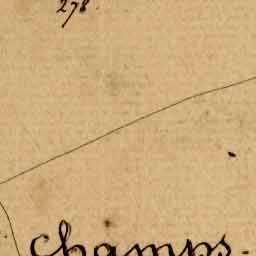 278.
champs.